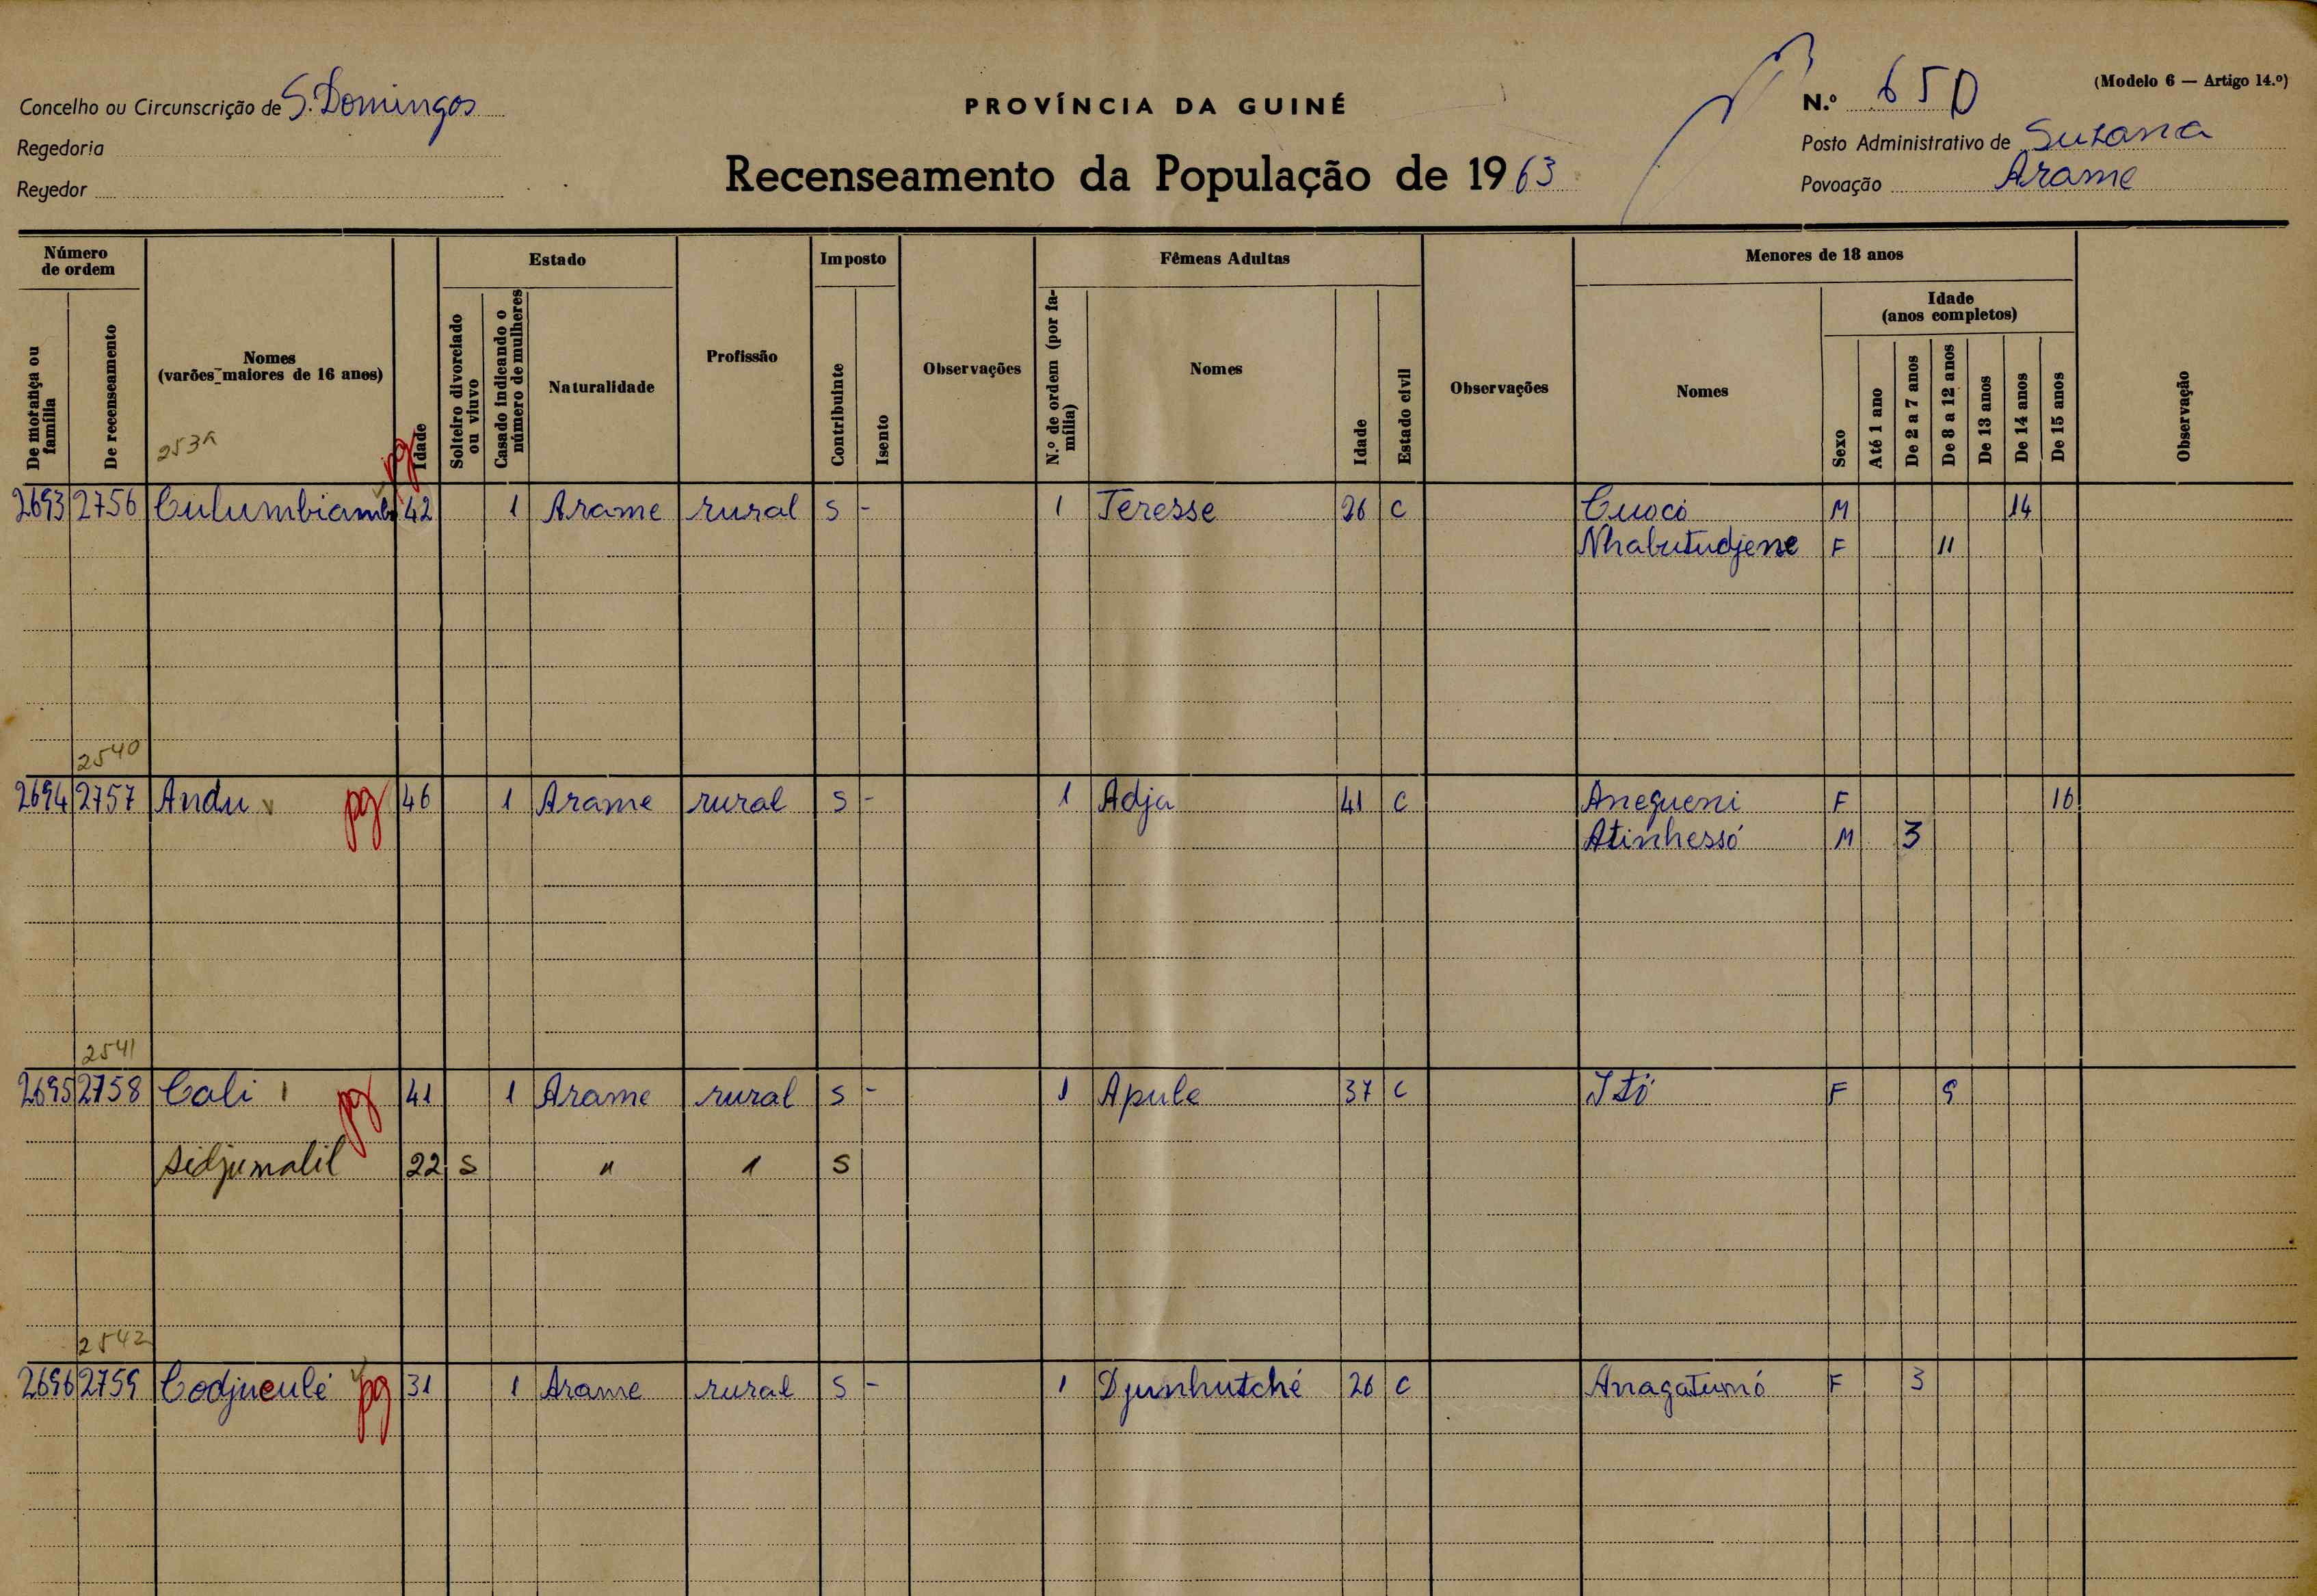 (Modelo 6 — Artigo 14.º)
Concelho ou Circunscrição de S. Domingos
PROVÍNCIA DA GUINÉ
N.º 650
Regedoria
Posto Administrativo de Suzana
Regedor
Recenseamento da População de 1963
Povoação Arame
Número de ordem
De morança ou família
De recenseamento
Nomes
(varões maiores de 16 anos)
Idade
Estado
Solteiro divorciado ou viuvo
Casado indicando o número de mulheres
Naturalidade
Profissão
Imposto
Contribuinte
Isento
Observações
Fêmeas Adultas
N.º de ordem (por família)
Nomes
Idade
Estado civil
Observações
Menores de 18 anos
Nomes
Sexo
Idade
(anos completos)
Até 1 ano
De 2 a 7 anos
De 8 a 12 anos
De 13 anos
De 14 anos
De 15 anos
Observação
pg
2693 2756 Culumbiambo 42 1 Arame rural S - 1 Teresse 26 C Cuocó M 14
Nhabutudjene F 11
2540
2694 2757 Andu pg 46 1 Arame rural S - 1 Adja 41 C Anequeni F 16
Atinhessó M 3
2541
2695 2758 Cali pg 41 1 Arame rural S - 1 Apule 37 C Itó F 9
Sidjumalil 22 S " " S
2542
2696 2759 Codjuculé pg 31 1 Arame rural S - 1 Djunhutché 26 C Anagatumó F 3